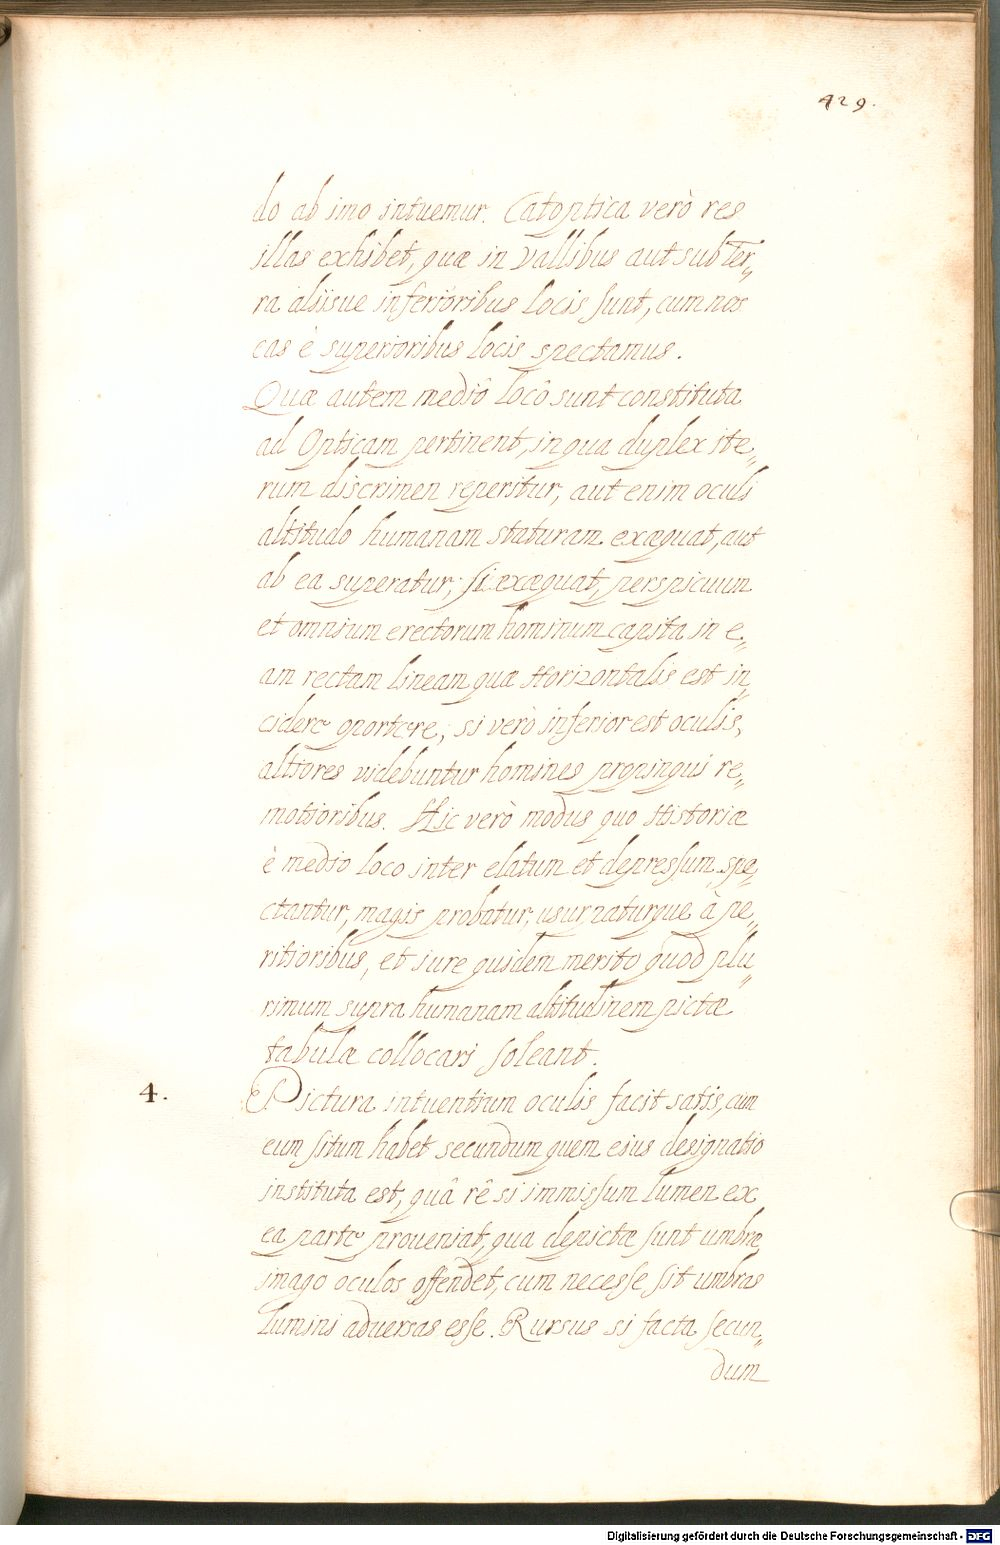 429.
do ab imo intuemur. Catoptica verò res
illas exhibet, quæ in vallibus aut subter„
ra aliisue inferioribus locis sunt, cum nos
eas è superioribus locis spectamus.
Quæ autem mediô locô sunt constituta
ad Opticam pertinent, in qua duplex ite„
rum discrimen reperitur, aut enim oculi
altitudo humanam staturam exæquat, aut
ab ea superatur; si exæquat, perspicuum
et omnium erectorum hominum capita in e„
am rectam lineam quæ Horizontalis est in„
cidere oportere; si verò inferior est oculis,
altiores videbuntur homines propinqui re„
motioribus. Hic verò modus quo Historiæ
è medio loco inter elatum et depressum spe„
ctantur, magis probatur, usurpaturque à pe„
ritioribus, et iure quidem merito quod plu„
rimum supra humanam altitudinem pictæ
tabulæ collocari soleant.
4. Pictura intuentium oculis facit satis, cum
eum situm habet secundum quem eius designatio
instituta est, quâ rê si immissum lumen ex
ea parte proveniat, qua depictæ sunt umbræ
imago oculos offendet, cum necesse sit umbras
lumini adversas esse. Rursus si facta secun„
dum
Digitalisierung gefördert durch die Deutsche Forschungsgemeinschaft - DFG